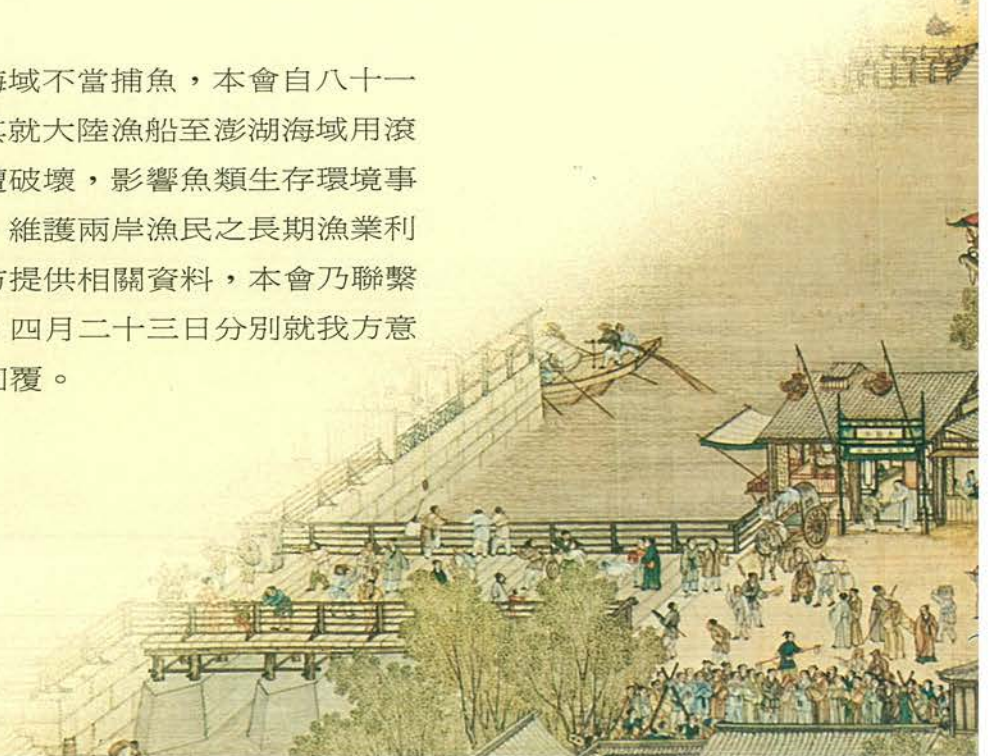 海域不當捕魚，本會自八十一
就大陸漁船至澎湖海域用滾
破壞，影響魚類生存環境事
維護兩岸漁民之長期漁業利
提供相關資料，本會乃聯繫
，四月二十三日分別就我方意
回覆。